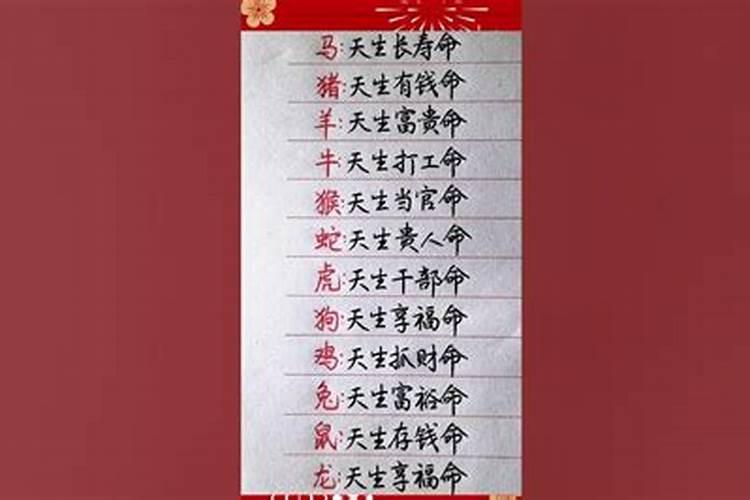 马:天生长寿命
猪:天生有钱命
羊:天生富贵命
牛:天生打工命
猴:天生当官命
蛇:天生贵人命
虎:天生干部命
狗:天生享福命
鸡:天生抓财命
兔:天生富裕命
鼠:天生存钱命
龙:天生享福命